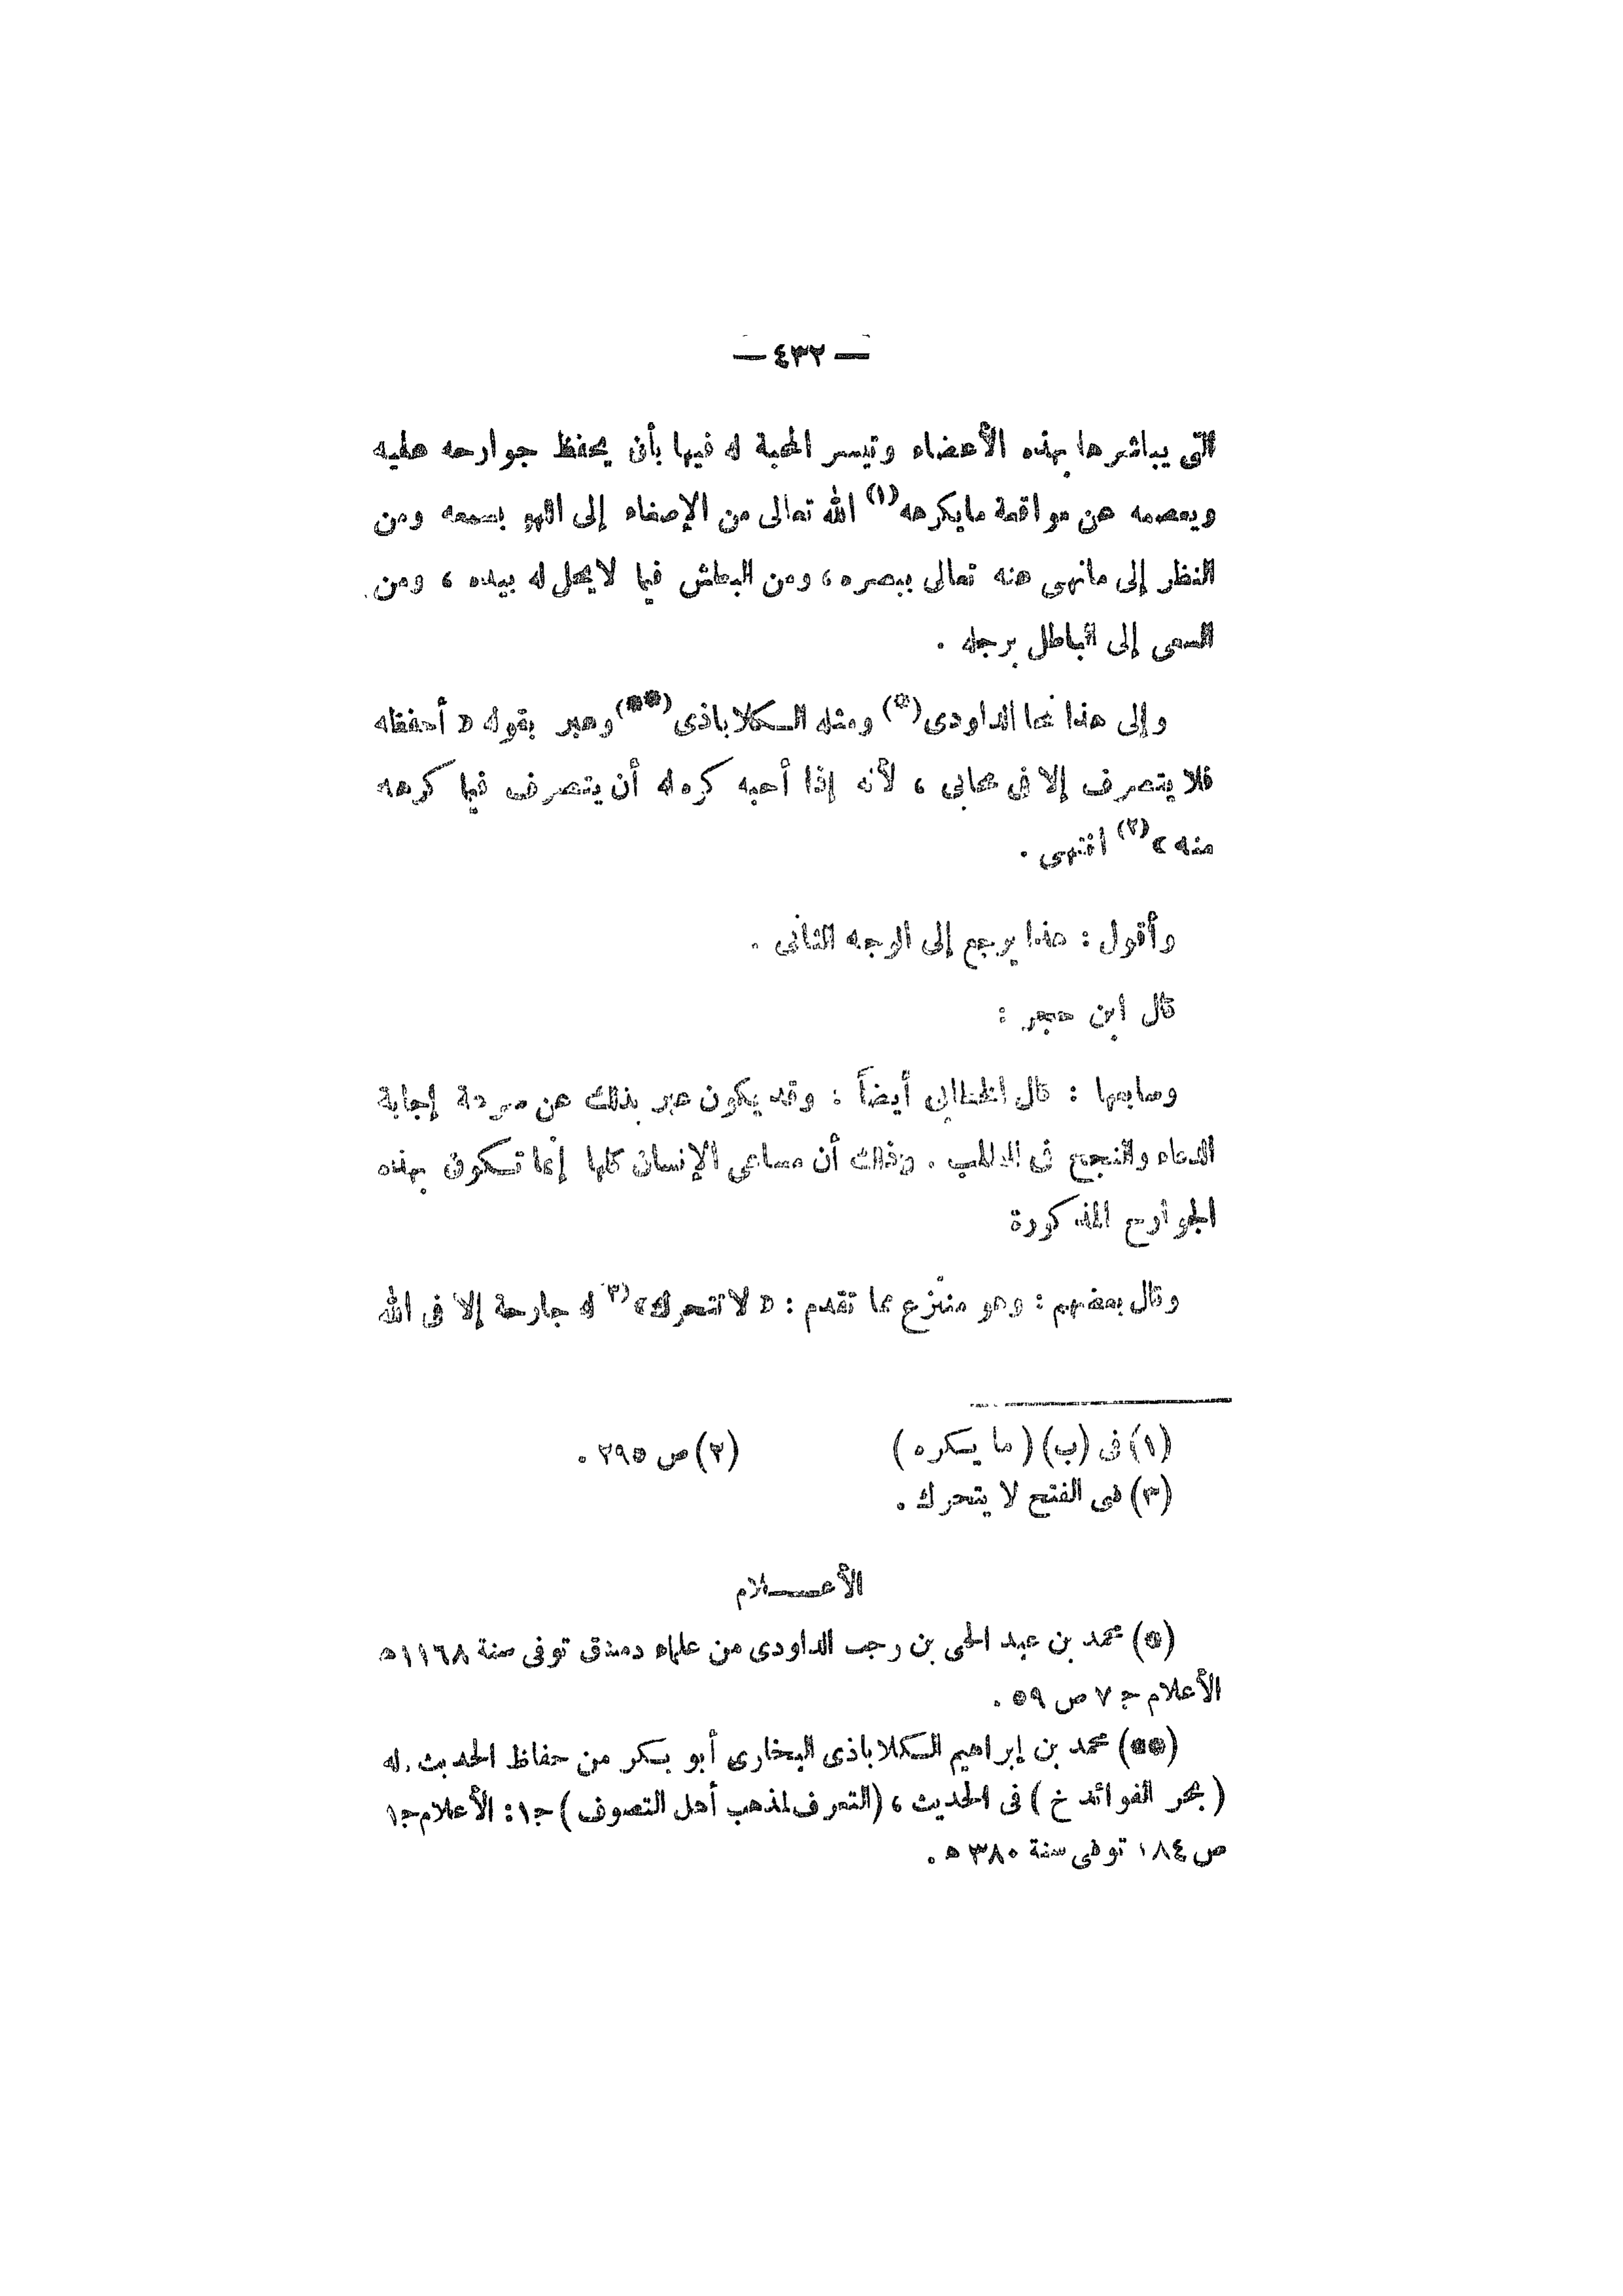 — ٤٣٢ —
التى يباشرها بهذه الأعضاء وتيسر المحبة له فيها بأن يحفظ جوارحه عليه
ويعصمه عن مواقعة مايكرهه(١) الله تعالى من الإصغاء إلى اللهو بسمعه ومن
النظر إلى مانهى عنه تعالى ببصره ، ومن البطش فيما لايحل له بيده ، ومن
السعى إلى الباطل برجله .
وإلى هذا نحا الداودى(*) ومثله الكلاباذى(**) وعبر بقوله « أحفظه
فلا يتصرف إلا فى محابى ، لأنه إذا أحبه كره له أن يتصرف فيما كرهه
منه »(٢) انتهى .
وأقول : هذا يرجع إلى الوجه الثانى .
قال ابن حجر :
وسابعها : قال الخطابى أيضاً : وقد يكون عبر بذلك عن سرعة إجابة
الدعاء والنجح فى الطلب . وذلك أن مساعى الإنسان كلها إنما تكون بهذه
الجوارح المذكورة
وقال بعضهم : وهو منتزع مما تقدم : « لا تتحرك»(٣) له جارحة إلا فى الله
(١) فى (ب) ( ما يكره ) (٢) ص ٢٩٥ .
(٣) فى الفتح لا يتحرك .
الأعـــلام
(*) محمد بن عبد الحى بن رجب الداودى من علماء دمشق توفى سنة ١١٦٨ه
الأعلام ج ٧ ص ٥٩ .
(**) محمد بن إبراهيم الكلاباذى البخارى أبو بكر من حفاظ الحديث . له
( بحر الفوائد خ ) فى الحديث ، (التعرف لمذهب أهل التصوف ) ج١ : الأعلام ج١
ص ١٨٤ توفى سنة ٣٨٠ ه .